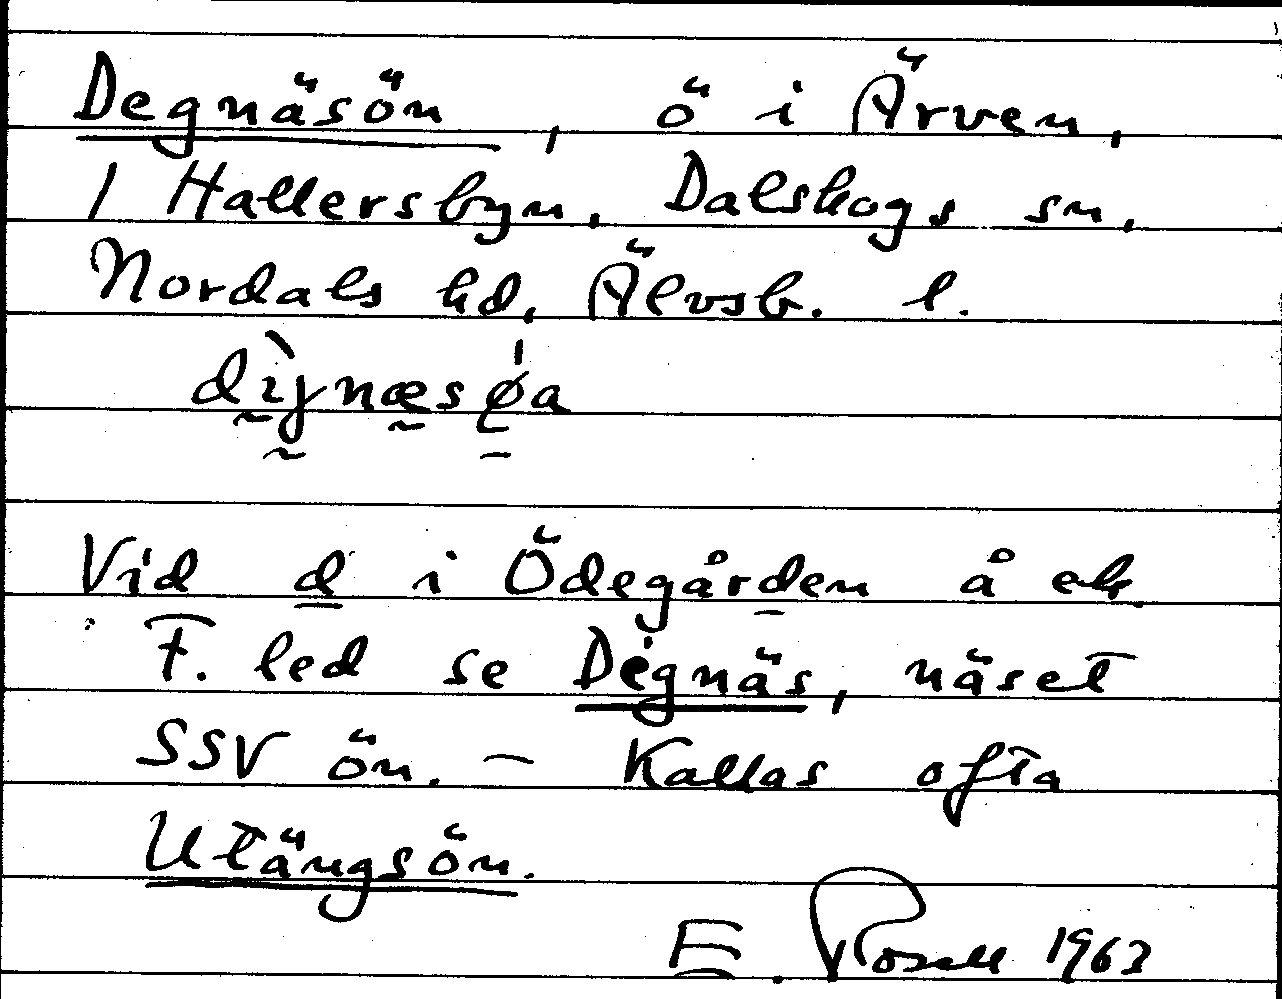 Degnäsön, ö i Ärven,
1 Hallersbyn, Dalskogs sn,
Nordals hd, Älvsb. l.
dìŋnæsǿa
Vid d i Ödegården å ek
F. led se Degnäs, näset
SSV ön. – Kallas ofta
Utängsön.
E. Rosell 1963